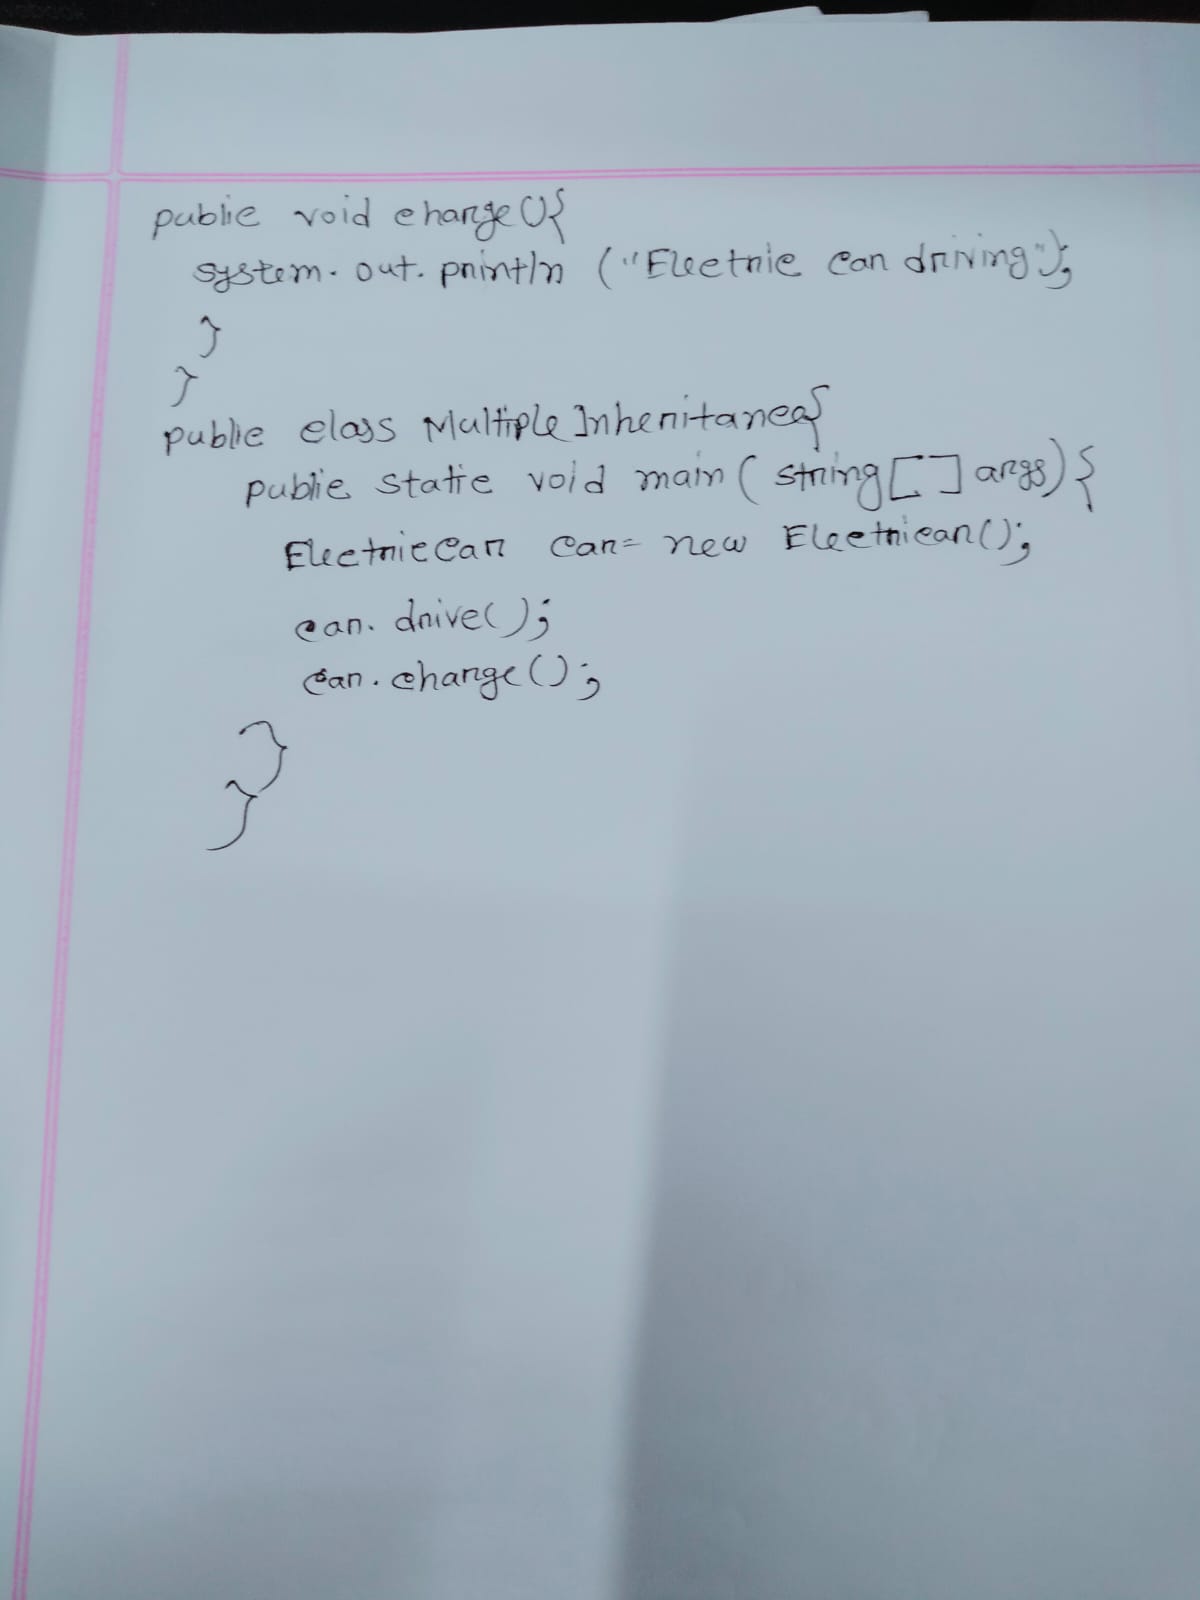 public void charge(){
system.out.println ("Electric car driving");
}
}
public class MultipleInheritance{
public static void main(string[] args){
ElectricCar car= new Electricar();
car.drive();
car.charge();
}
}